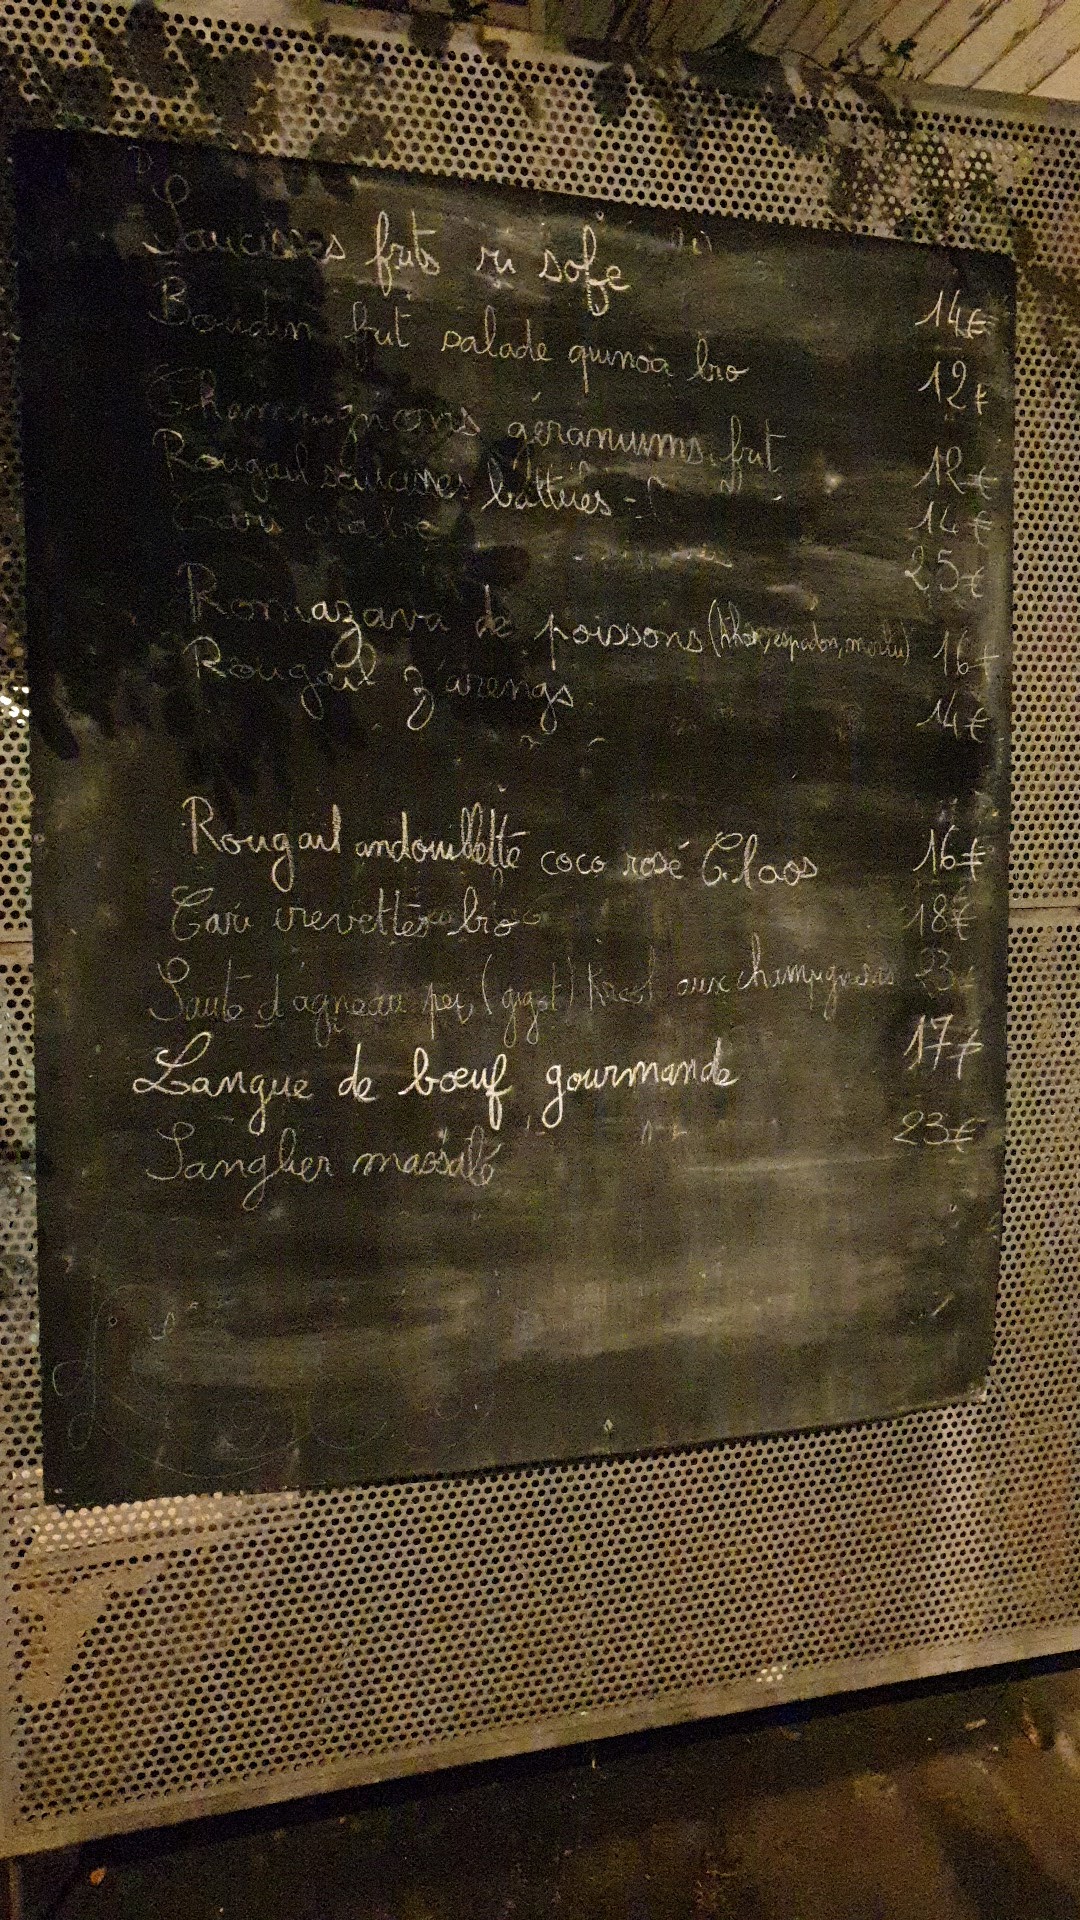 Saucisses frits ri sofe 14€
Boudin frit salade quinoa bio 12€
Champignons géraniums frit 12€
Rougail saucisses battues 14€
Cari 25€
Romazava de poissons (thon, espadon, merlu) 16€
Rougail z'arengs 14€
Rougail andouillette coco rosé Cilaos 16€
Cari crevettes bio 18€
Sauté d'agneau pei (gigot) aux champignons 23€
Langue de bœuf gourmande 17€
Sanglier massalé 23€